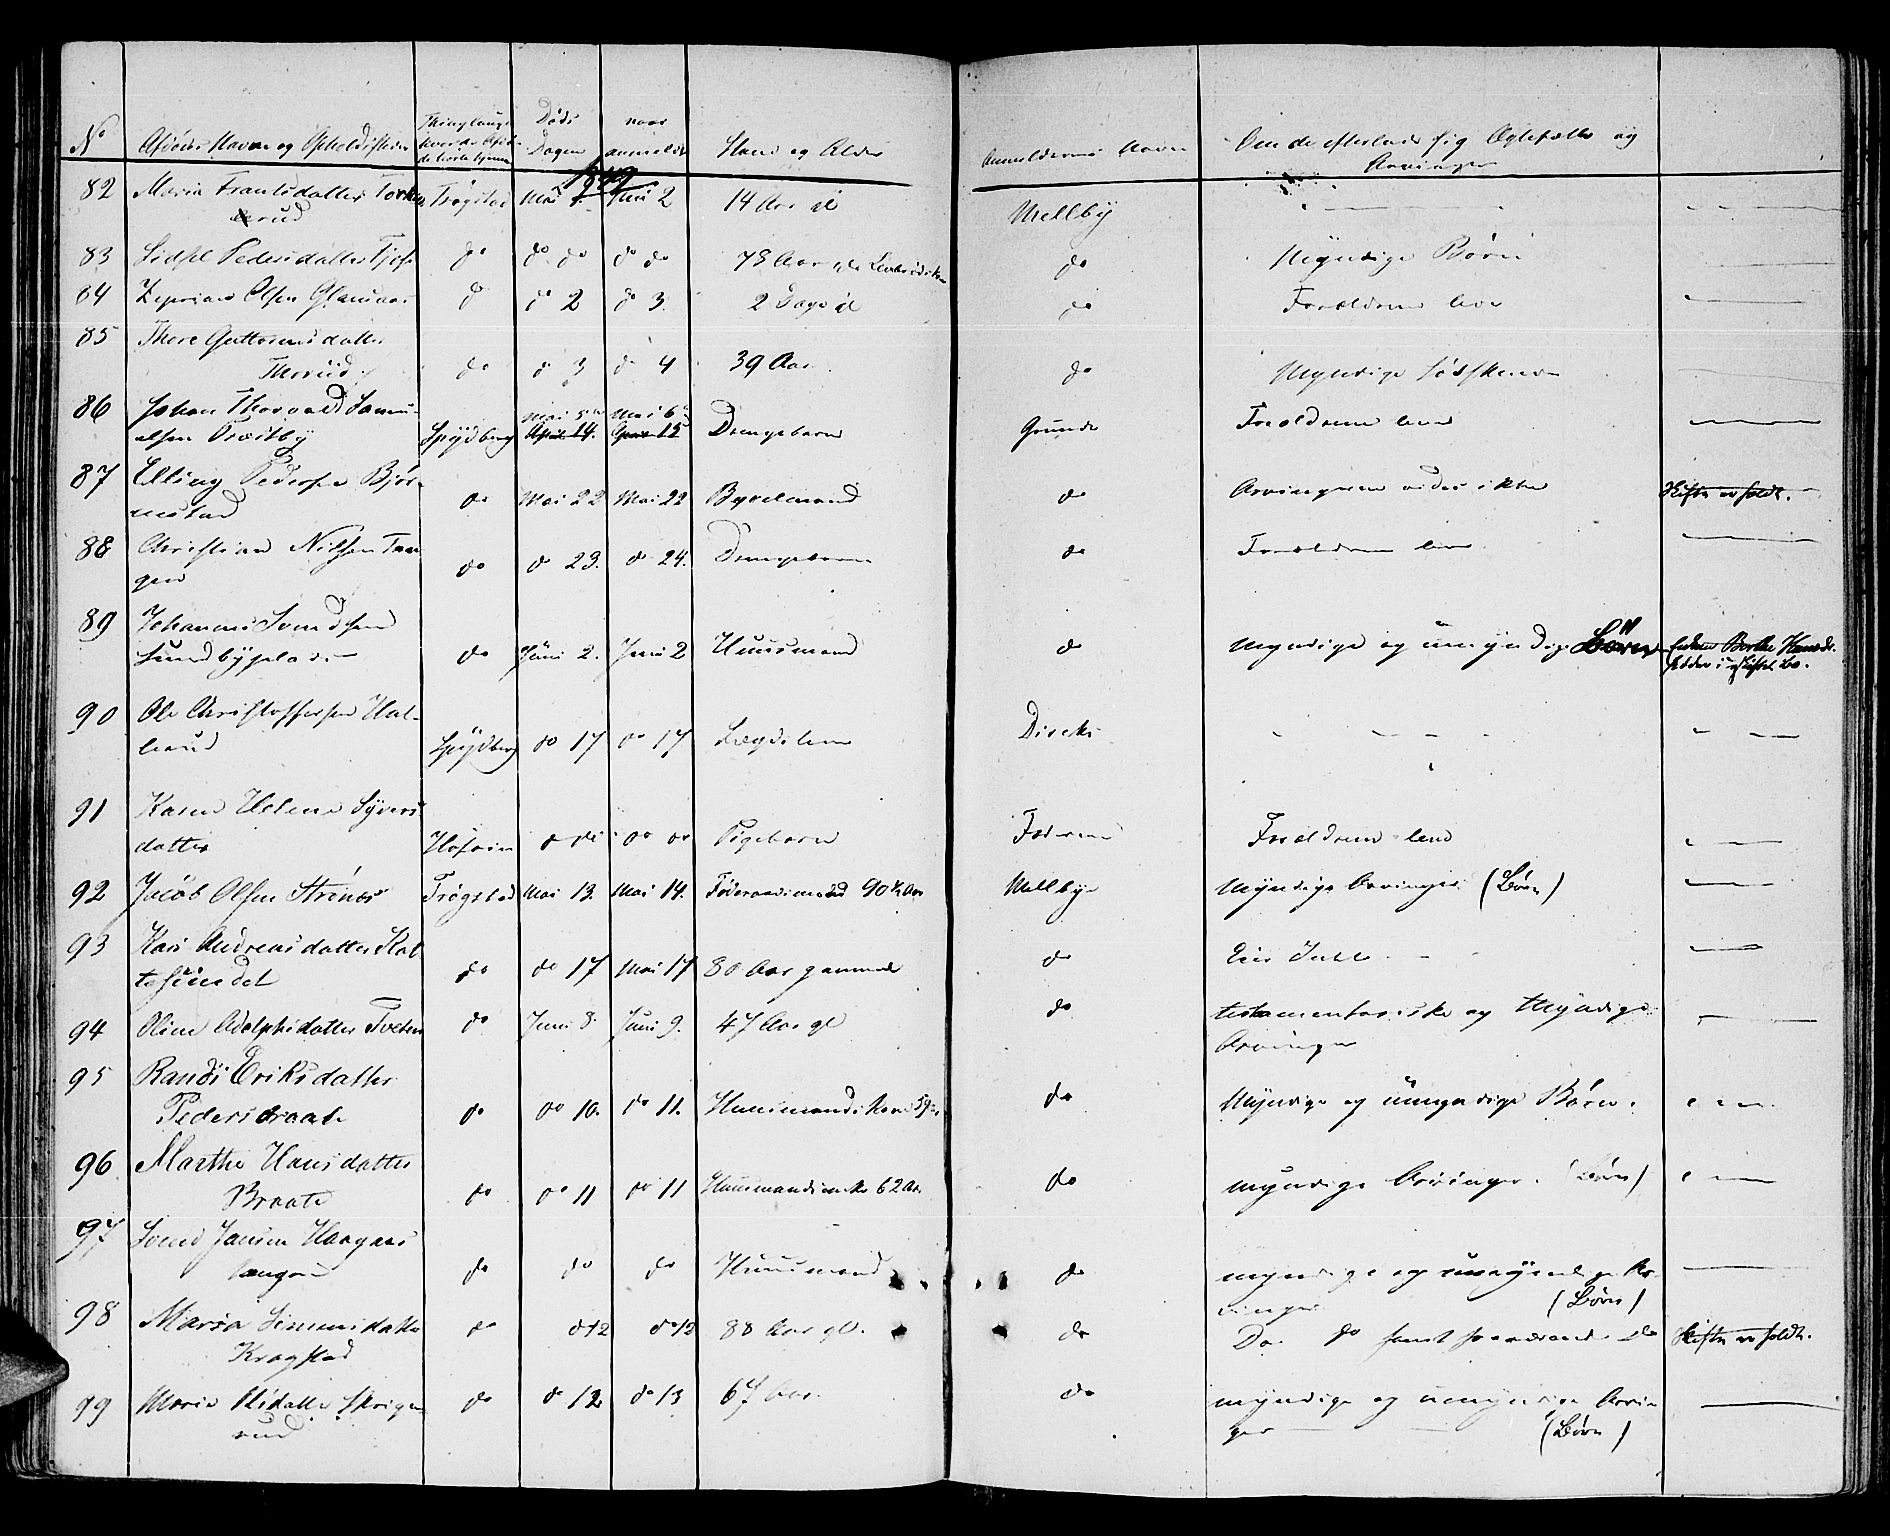 No Afdødes Navne og Opholdssteder Thinglaug hvor de Afdøde hørte hjemme Døds Dagen naar anmeldt Stand og Alder Anmelderens Navn Om de efterlader sig Ægtefælle og
Arvinger
1849
82 Maria Frantsdatter Torkels Trøgstad Mai 1. Juni 2 14 Aar gl Mellby — —
erud
83 Sidsel Pedersdatter do do do do do 73 Aar gl do Myndige Børn —
84 Olsen Glenne do do 2 do 3. 2 Dage gl do Forældrene leve —
85 Thore Guttormsdatter
Thorud do do 3 do 4 39 Aar do Myndige Sødskende
86 Johan Thorvald Samu- Mai 5te Mai 6te
elsen Tveitby Spydberg April 14. April 15 Drengebarn Grunde Forældrene leve —
87 Elling Pedersen Bjør-
nestad do Mai 22 Mai 22 Bygselmand do Arvingerne vides ikke Skifte er holdt.
88 Christian Nilsen Tan-
gen do do 23. do 24. Drengebarn do Forældrene leve —
89 Johannes Svendsen
Sundbyplads do Juni 2. Juni 2 Huusmand do Myndige og umyndige Børn Enken Berthe Hansdr.
sidder i uskiftet Bo.
90 Ole Christoffersen Hal-
lerud Spydberg do 17 do 17 Lægdslem Direkte — — — —
91 Karen Helene Syvers
datter Hofvin do do do do Pigebarn Faderen Forældrene leve —
92 Jacob Olsen Strønes Trøgstad Mai 13. Mai 14. Føderaadsmand 90 ½ Aar Mellbye Myndige Arvinger (Børn) —
93 Kari Andreasdatter Kat-
tesundet do do 17 Mai 17 80 Aar gammel do Eier Intet — —
94 Oline Adolphsdatter Tveten do Juni 8. Juni 9. 47 Aar gl do testamentariske og Myndige
Arvinger
95 Randi Eriksdatter
Pedersbraate do do 10. do 11. Huusmandskone 59 do Myndige og umyndige Børn. —
96 Marthe Hansdatter
Braate do do 11 do 11 Huusmandsenke 62 Aar do myndige Arvinger. (Børn) —
97 Svend Jansen Haagaas
tangen do do do Huusmand do myndige og umyndige Ar-
vinger (Børn)
98 Maria Simensdatter do do 12 do 12 88 Aar gl. do Do. do samt do Skifte er holdt.
Kragstad
99 Maria Olsdatter Skriger- do do 12 do 13 67 Aar. do myndige og umyndige Arvin-
rud ger — — (Børn)